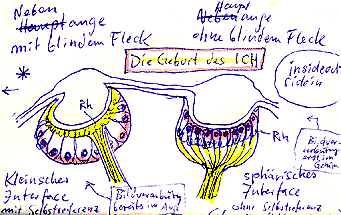 Neben
Hauptauge
mit blindem Fleck
Haupt
Nebenauge
ohne blindem Fleck
Die Geburt des ICH
insideout
sidein
Rh
Rh
Bildver-
arbeitung
erst im
Gehirn
Kleinsches
Interface
mit Selbstreferenz
Bildverarbeitung
bereits im Auge
sphärisches
Interface
ohne Selbstreferenz